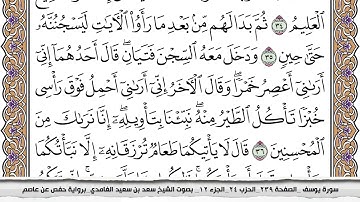 ٱلۡعَلِيمُ ٣٤ ثُمَّ بَدَا لَهُم مِّنۢ بَعۡدِ مَا رَأَوُاْ ٱلۡأٓيَٰتِ لَيَسۡجُنُنَّهُۥ
حَتَّىٰ حِينٖ ٣٥ وَدَخَلَ مَعَهُ ٱلسِّجۡنَ فَتَيَانِۖ قَالَ أَحَدُهُمَآ إِنِّيٓ
أَرَىٰنِيٓ أَعۡصِرُ خَمۡرٗاۖ وَقَالَ ٱلۡأٓخَرُ إِنِّيٓ أَرَىٰنِيٓ أَحۡمِلُ فَوۡقَ رَأۡسِي
خُبۡزٗا تَأۡكُلُ ٱلطَّيۡرُ مِنۡهُۖ نَبِّئۡنَا بِتَأۡوِيلِهِۦٓۖ إِنَّا نَرَىٰكَ مِنَ
ٱلۡمُحۡسِنِينَ ٣٦ قَالَ لَا يَأۡتِيكُمَا طَعَامٞ تُرۡزَقَانِهِۦٓ إِلَّا نَبَّأۡتُكُمَا
سورة يوسف _الصفحة ٢٣٩_ الحزب ٢٤_ الجزء ١٢_ بصوت الشيخ سعد بن سعيد الغامدي_ برواية حفص عن عاصم